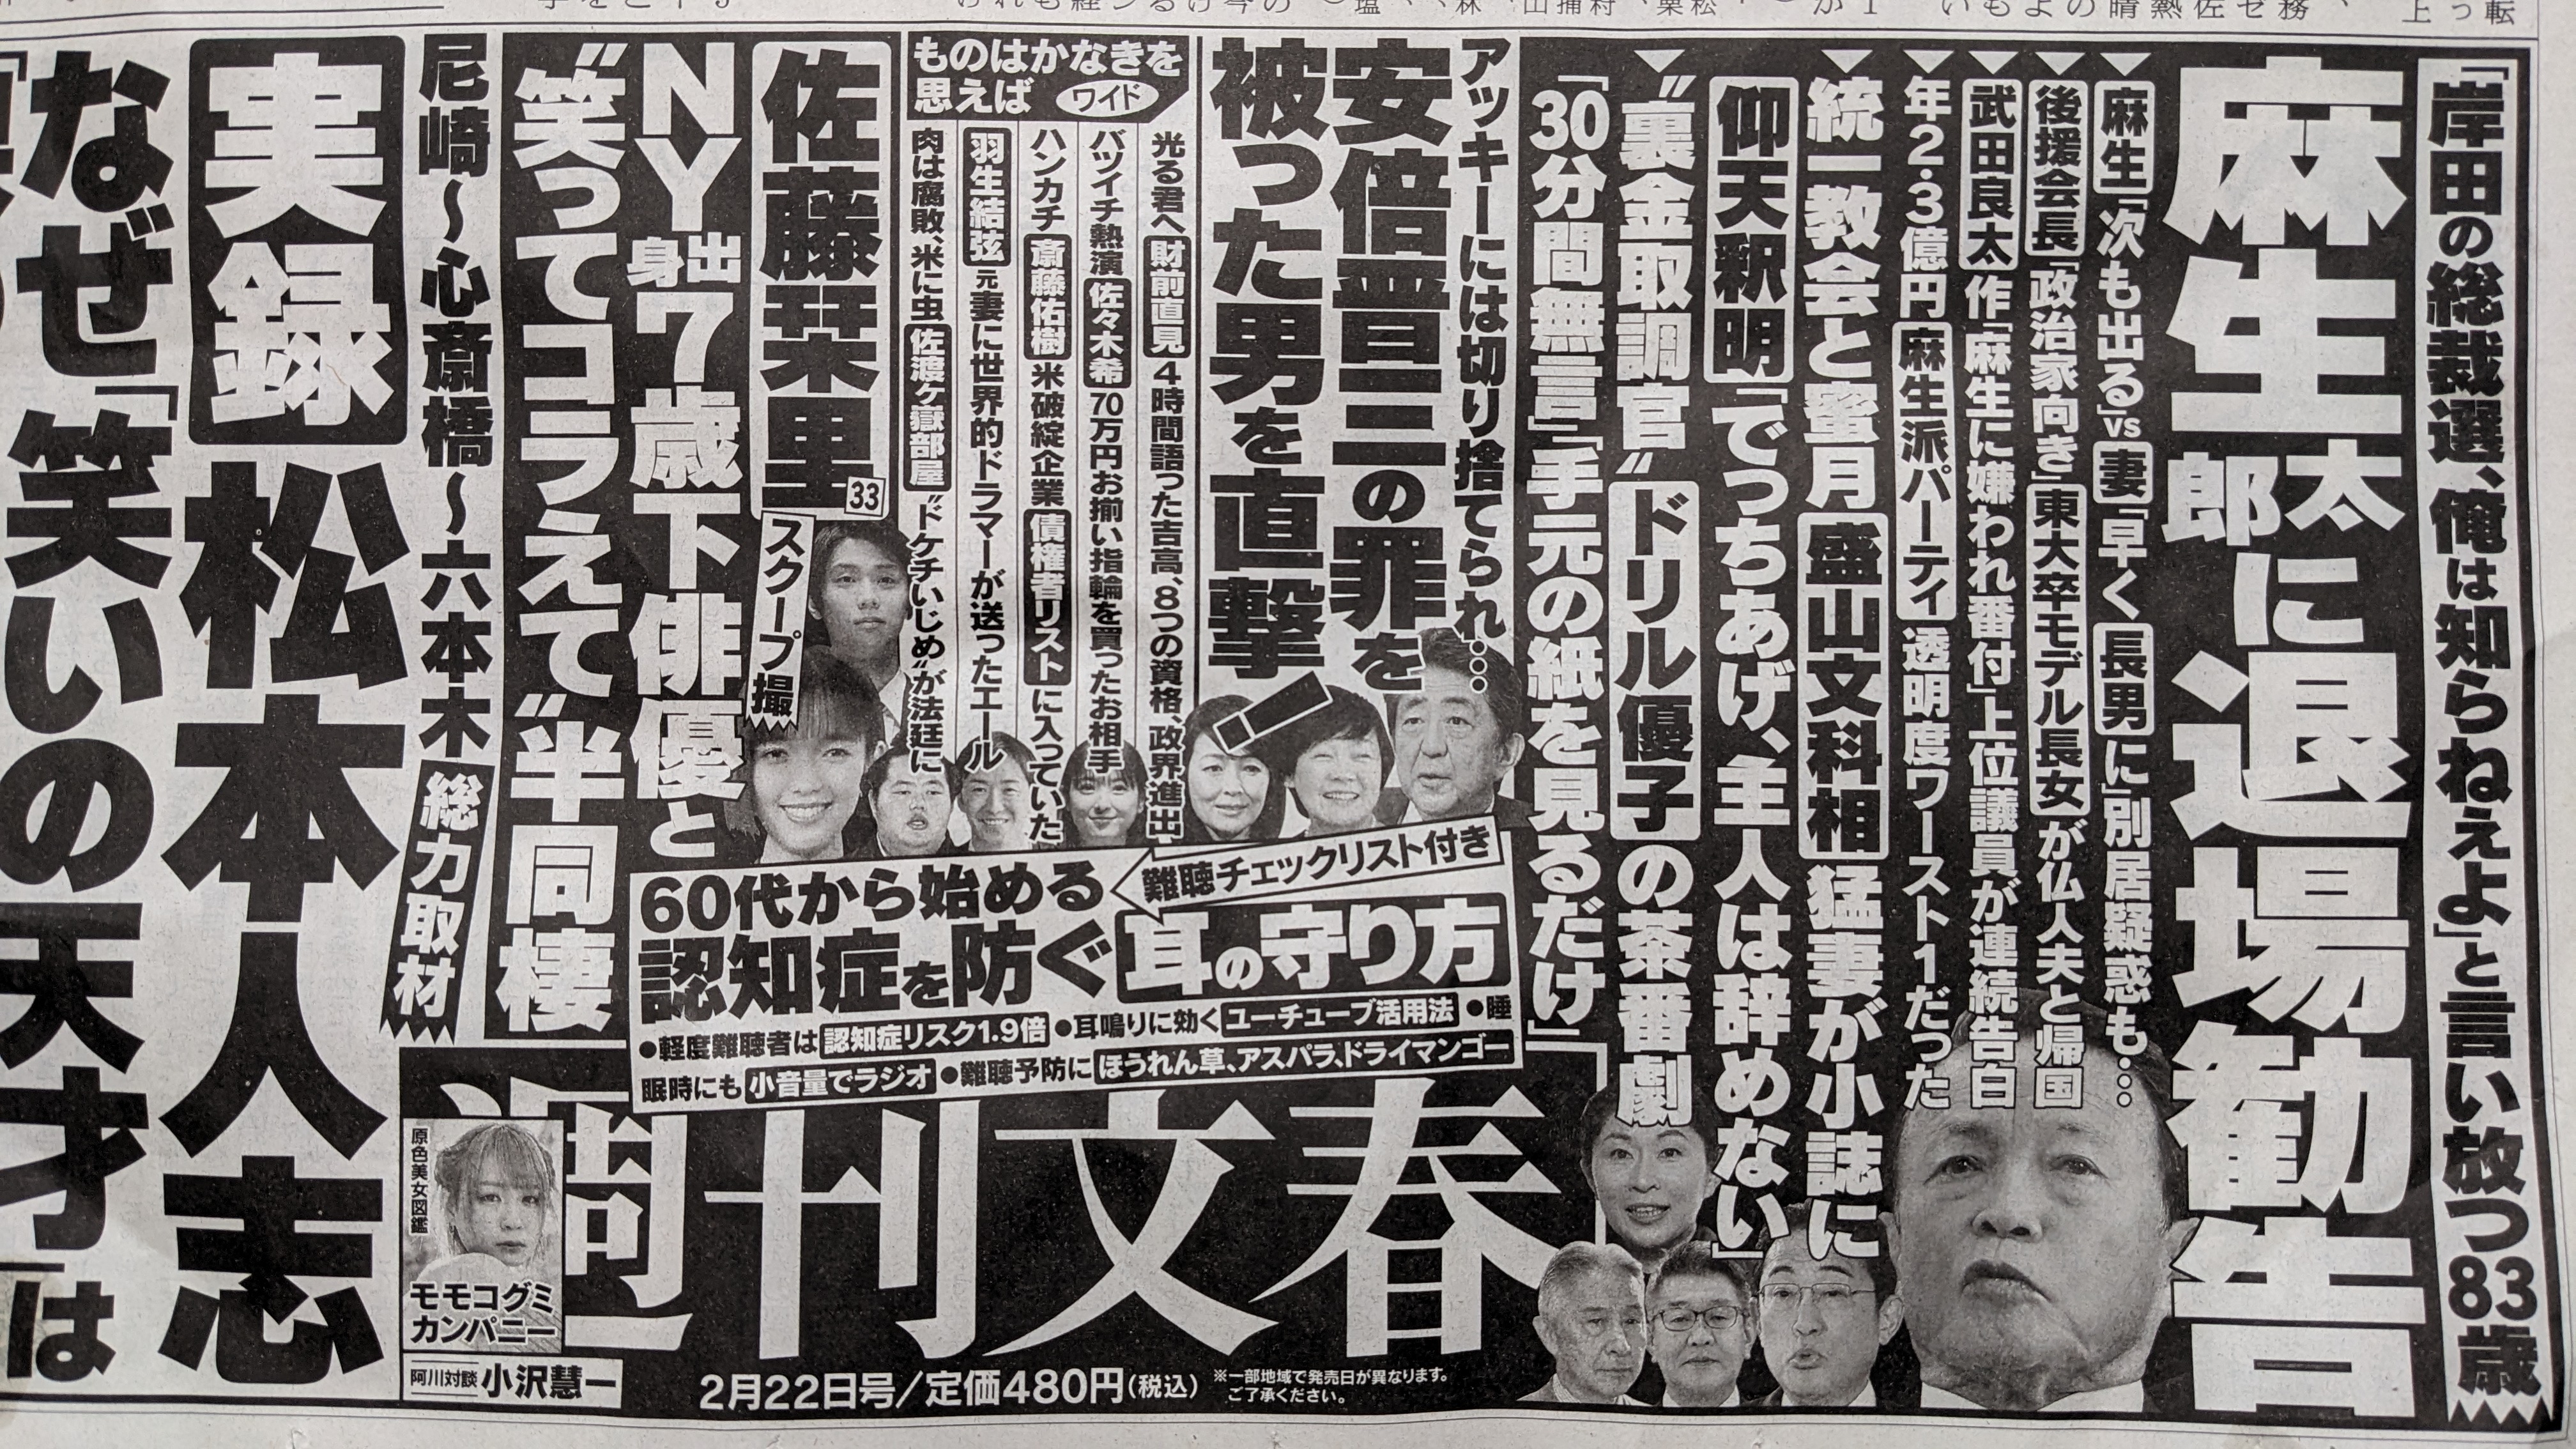 「岸田の総裁選、俺は知らねえよ」と言い放つ83歳
麻生太郎に退場勧告
麻生「次も出る」vs妻「早く長男に」別居疑惑も…
後援会長「政治家向き」東大卒モデル長女が仏人夫と帰国
武田良太作「麻生に嫌われ番付」上位議員が連続告白
年2・3億円麻生派パーティ透明度ワースト1だった
統一教会と蜜月盛山文科相猛妻が小誌に
仰天釈明「でっちあげ、主人は辞めない」
“裏金取調官”ドリル優子の茶番劇
「30分間無言」「手元の紙を見るだけ」
アッキーには切り捨てられ…
安倍晋三の罪を
被った男を直撃!
ものはかなきを
思えば
ワイド
光る君へ財前直見4時間語った吉高、8つの資格、政界進出
バツイチ熱演佐々木希70万円お揃い指輪を買ったお相手
ハンカチ斎藤佑樹米破綻企業債権者リストに入っていた
羽生結弦元妻に世界的ドラマーが送ったエール
肉は腐敗、米に虫佐渡ケ嶽部屋“ドケチいじめ”が法廷に
佐藤栞里33
スクープ撮
NY出身7歳下俳優と
“笑ってコラえて”半同棲
難聴チェックリスト付き
60代から始める
認知症を防ぐ耳の守り方
●軽度難聴者は認知症リスク1.9倍●耳鳴りに効くユーチューブ活用法●睡
眠時にも小音量でラジオ●難聴予防にほうれん草、アスパラ、ドライマンゴー
尼崎〜心斎橋〜六本木総力取材
実録松本人志
なぜ「笑いの天才」は
週刊文春
原色美女図鑑
モモコグミ
カンパニー
阿川対談小沢慧一
2月22日号/定価480円(税込)
※一部地域で発売日が異なります。
ご了承ください。